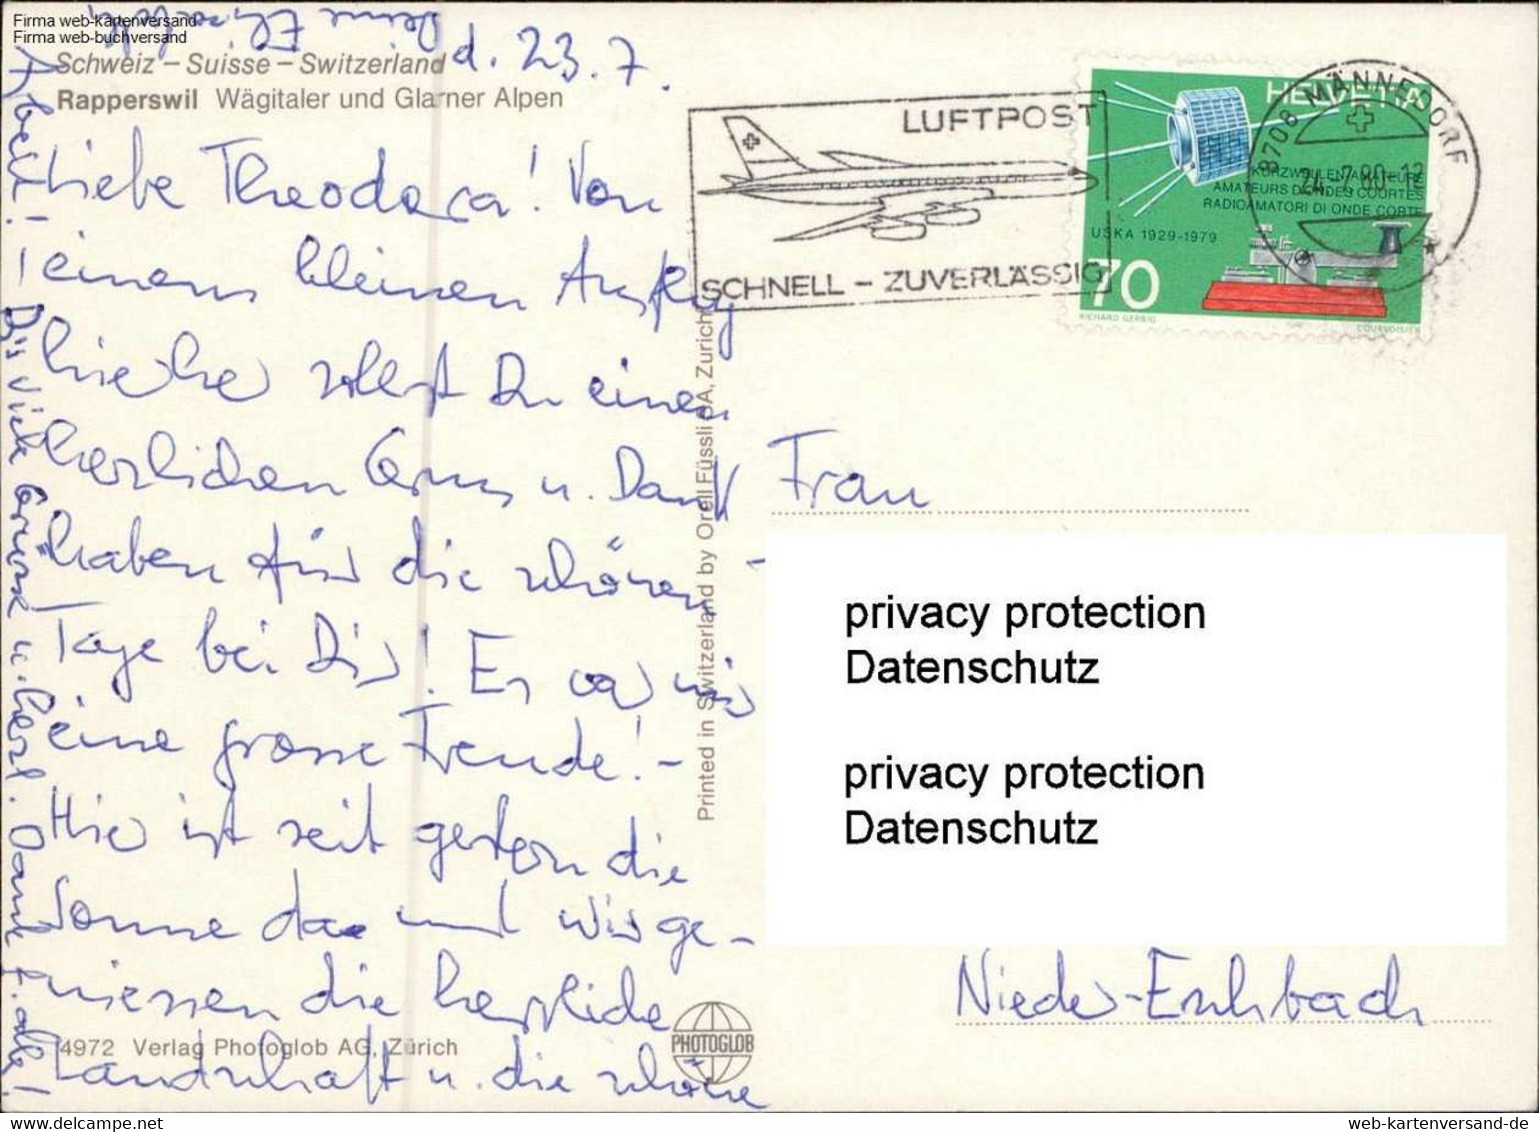 Firma web-kartenversand
Firma web-buchversand
Schweiz – Suisse – Switzerland
Rapperswil Wägitaler und Glarner Alpen
d. 23. 7.
Liebe Theodora! Von
einem kleinen Ausflug
sollst Du einen
herzlichen Gruss u. Dank
haben für die schönen
Tage bei Dir! Es war mir
eine grosse Freude! –
Hier ist seit gestern die
Sonne da und wir ge-
niessen die herrliche
Landschaft u. die schöne
Arbeit!
Bis viele Grüsse u. herzl. Dank f. alles!
Deine Elisabeth
Printed in Switzerland by Orell Füssli SA, Zurich
4972 Verlag Photoglob AG, Zürich
PHOTOGLOB
LUFTPOST
SCHNELL – ZUVERLÄSSIG
HELVETIA
KURZWELLENAMATEURE
AMATEURS D'ONDES COURTES
RADIOAMATORI DI ONDE CORTE
USKA 1929-1979
70
RICHARD GERBIG
COURVOISIER
8708 MÄNNEDORF
24.-7.80-12
Frau
privacy protection
Datenschutz
privacy protection
Datenschutz
Nieder-Eschbach
web-kartenversand-de